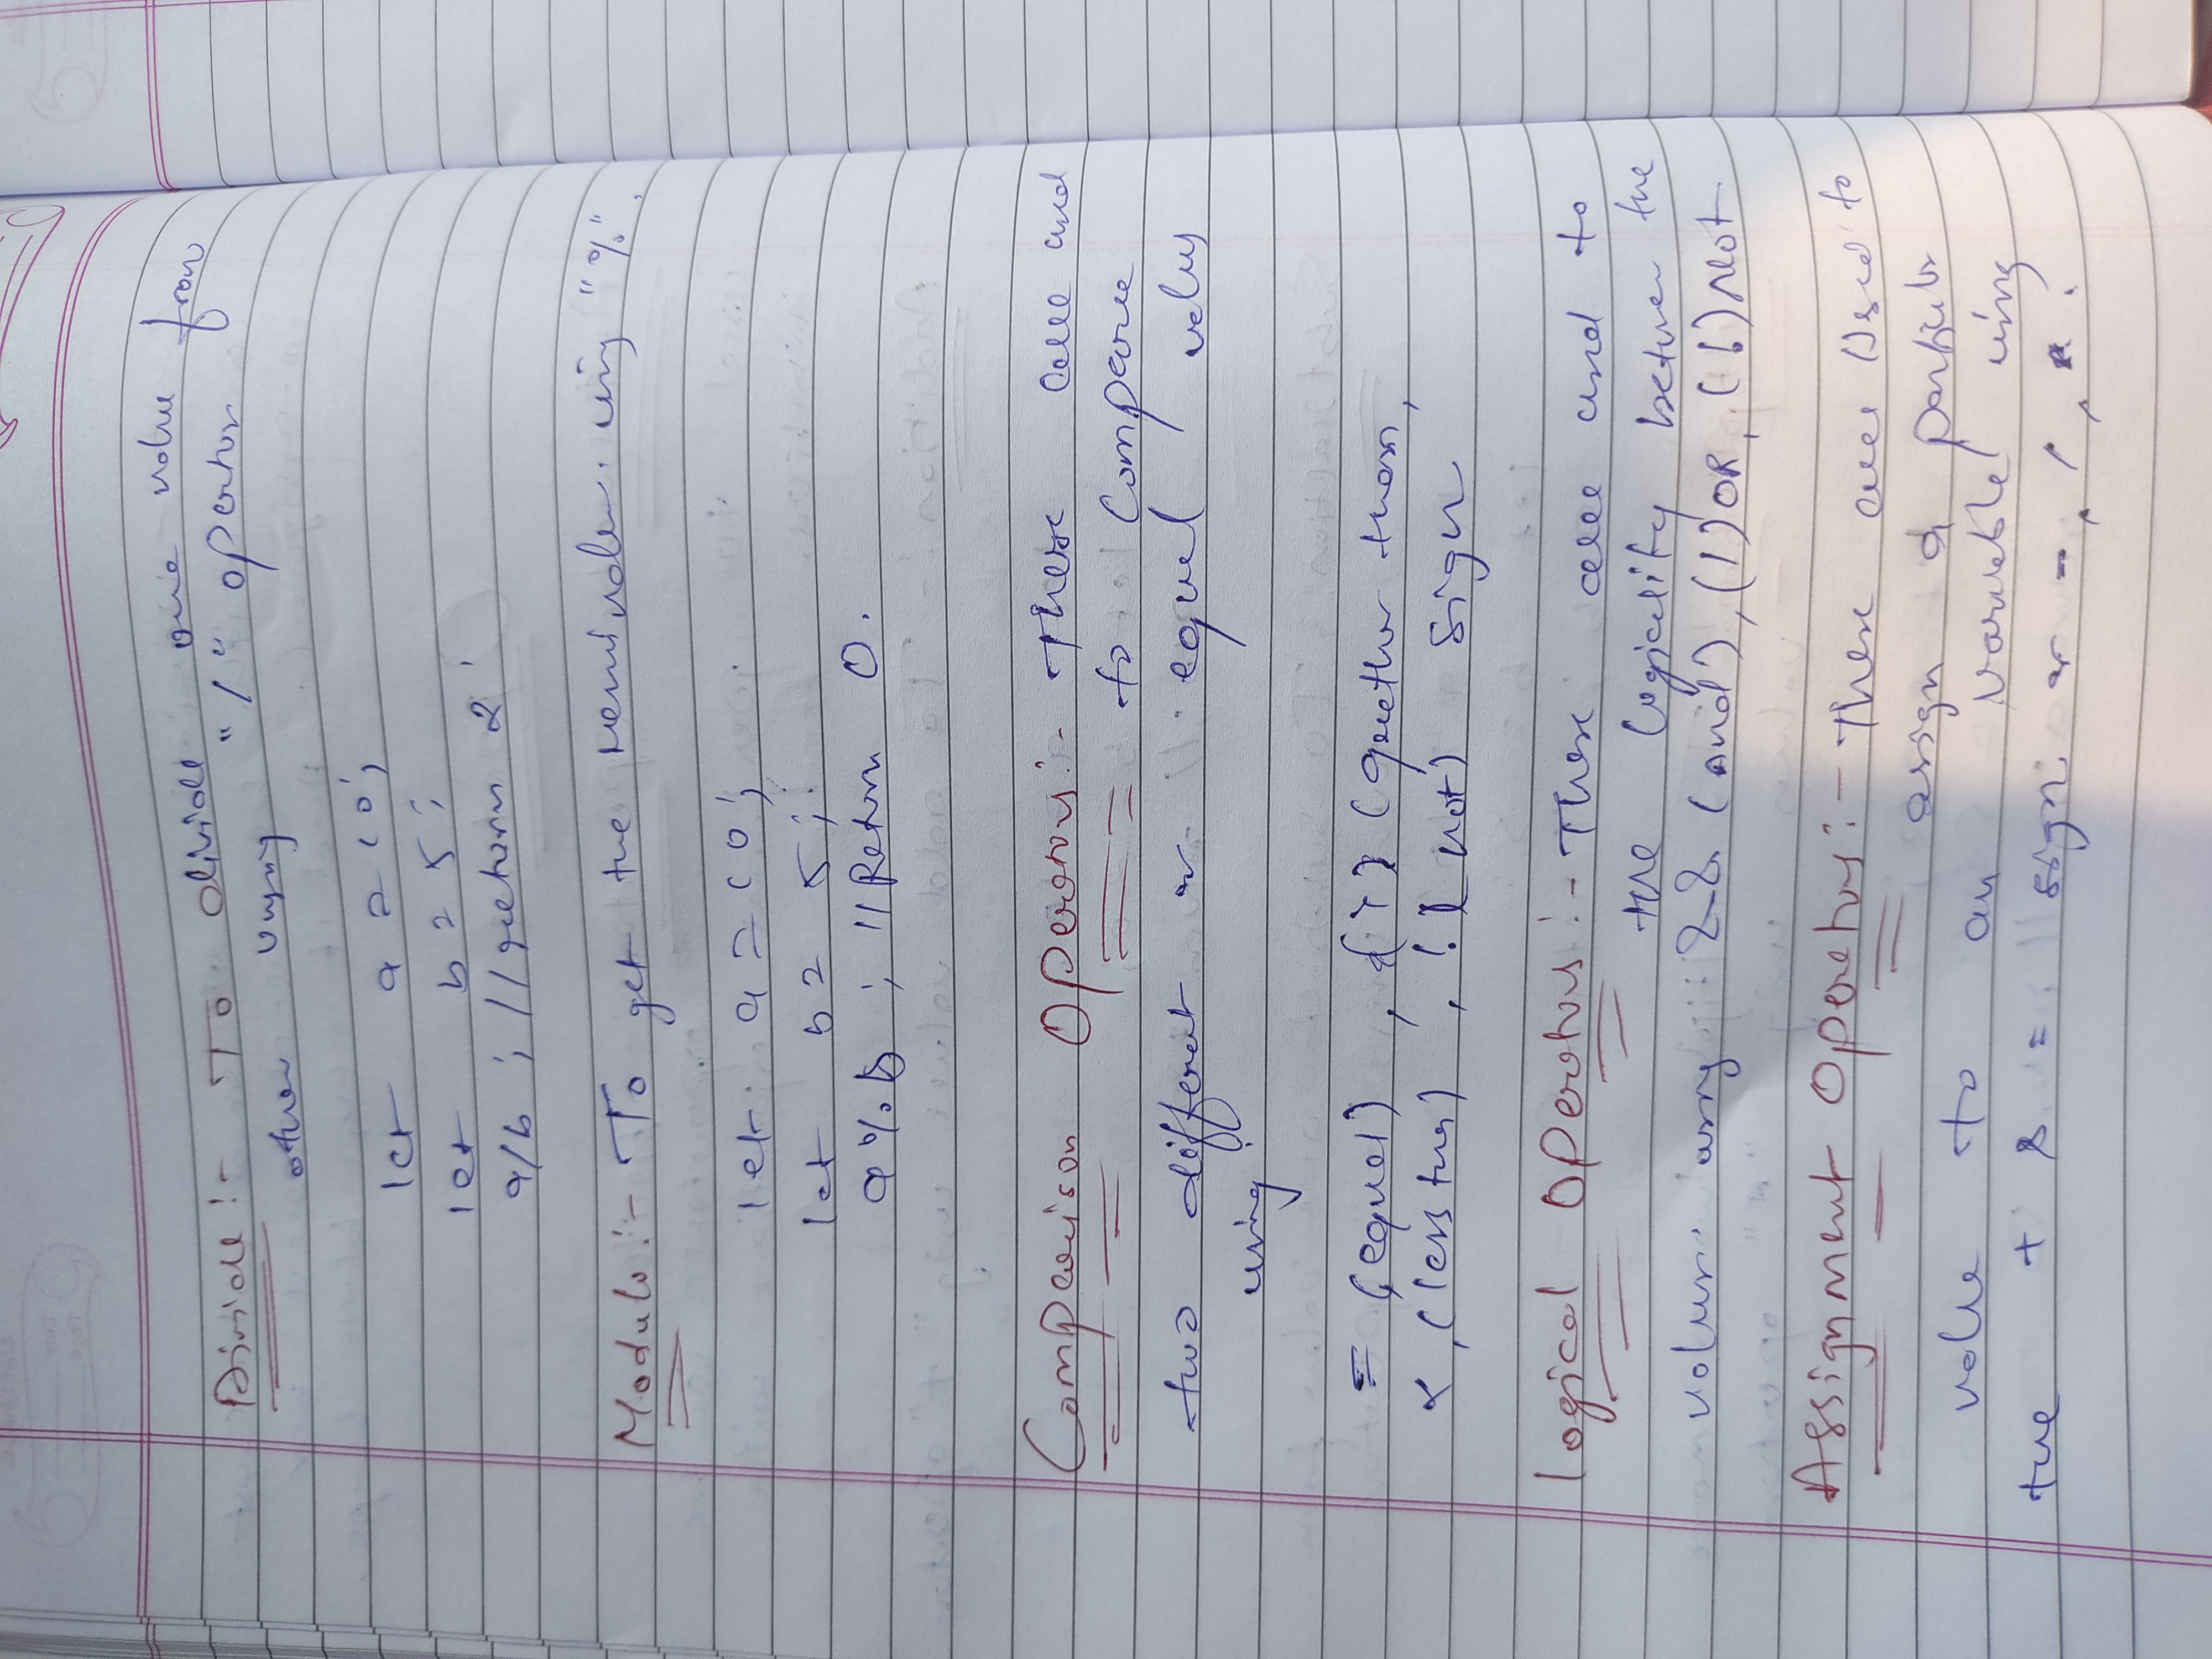 Divide :- To divide one value from
other using "/" opertor
let a = 10;
let b = 5;
a/b ; // return 2
Modulo :- To get the reminder using "%".
let a = 10;
let b = 5;
a % b ; // Return 0.
Comparison Operators :- These are used
to Compare
two different or equal values
using :
= (equal) , (>) (greather than,
<, (less than) , ! ( not) sign
Logical Operators :- These are used to
the logicality between the
values using && (And), (|) OR, (!) Not
Assignment Operators :- These are used to
asign a particular
value to an variable using
the + & = sign or -, /, * .